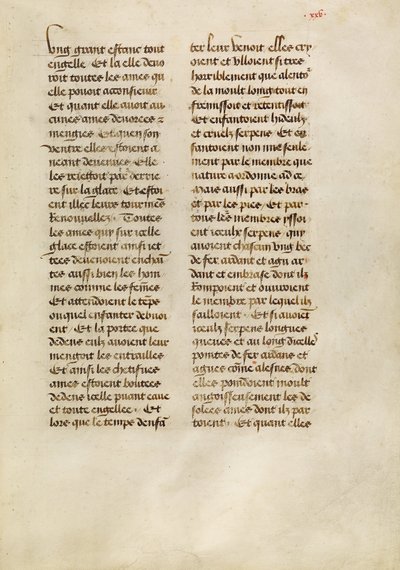 .xxv.
Vng grant estanc tout
engelle Et la elle deuo
roit toutes les ames qu
elle pouoit aconsieuir
Et quant elle auoit au
cunes ames deuorees z
mengies Et quen son
ventre elles estoient a
neant deuenues Elle
les reiettoit par derrie
re sur la glace Et estoi
ent illec leurs tourmēs
Renouuellez Toutes
les ames qui sur icelle
glace estoient ainsi iet
tees deuenoient enchai
tes aussi bien les hom
mes comme les femēs
Et attendoient le tēps
ouquel enfanter deuoi
ent Et la portee que
dedens eulz auoient leur
mengoit les entrailles
Et ainsi les chetifues
ames estoient boutees
dedens icelle puant eaue
et toute engellee. Et
lors que le temps denfā
ter leur venoit elles cry
oient et vlloient si tres
horriblement que alento
de la moult loing tout en
fremissoit et retentissoit
Et enfantoient hideulz
et cruelz serpens Et en
fantoient non mie seule
ment par le membre que
nature a ordonne ad ce
Mais aussi par les bras
et par les piez Et par
tous les membres yssoi
ent iceulx serpens qui
auoient chascun vng bec
de fer ardant et agu ar
dant et embrase dont ilz
Rompoient et ouuroient
le membre par lequel ilz
sailloient. Et si auoiēt
iceulz serpens longues
queues et au long dicelles
pointes de fer ardans et
agues cōme alesnes dont
elles poindoient moult
angoisseusement les de
solees ames dont ilz par
toient. Et quant elles